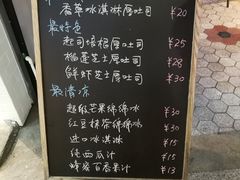 香草冰淇淋厚吐司 ¥20
最特色
起司培根厚吐司 ¥25
榴莲芝士厚吐司 ¥28
鲜虾芝士厚吐司 ¥30
最清凉
超级芒果绵绵冰 ¥30
红豆抹茶绵绵冰 ¥30
进口冰淇淋 ¥15
纯西瓜汁 ¥15
蜂蜜百香果汁 ¥13